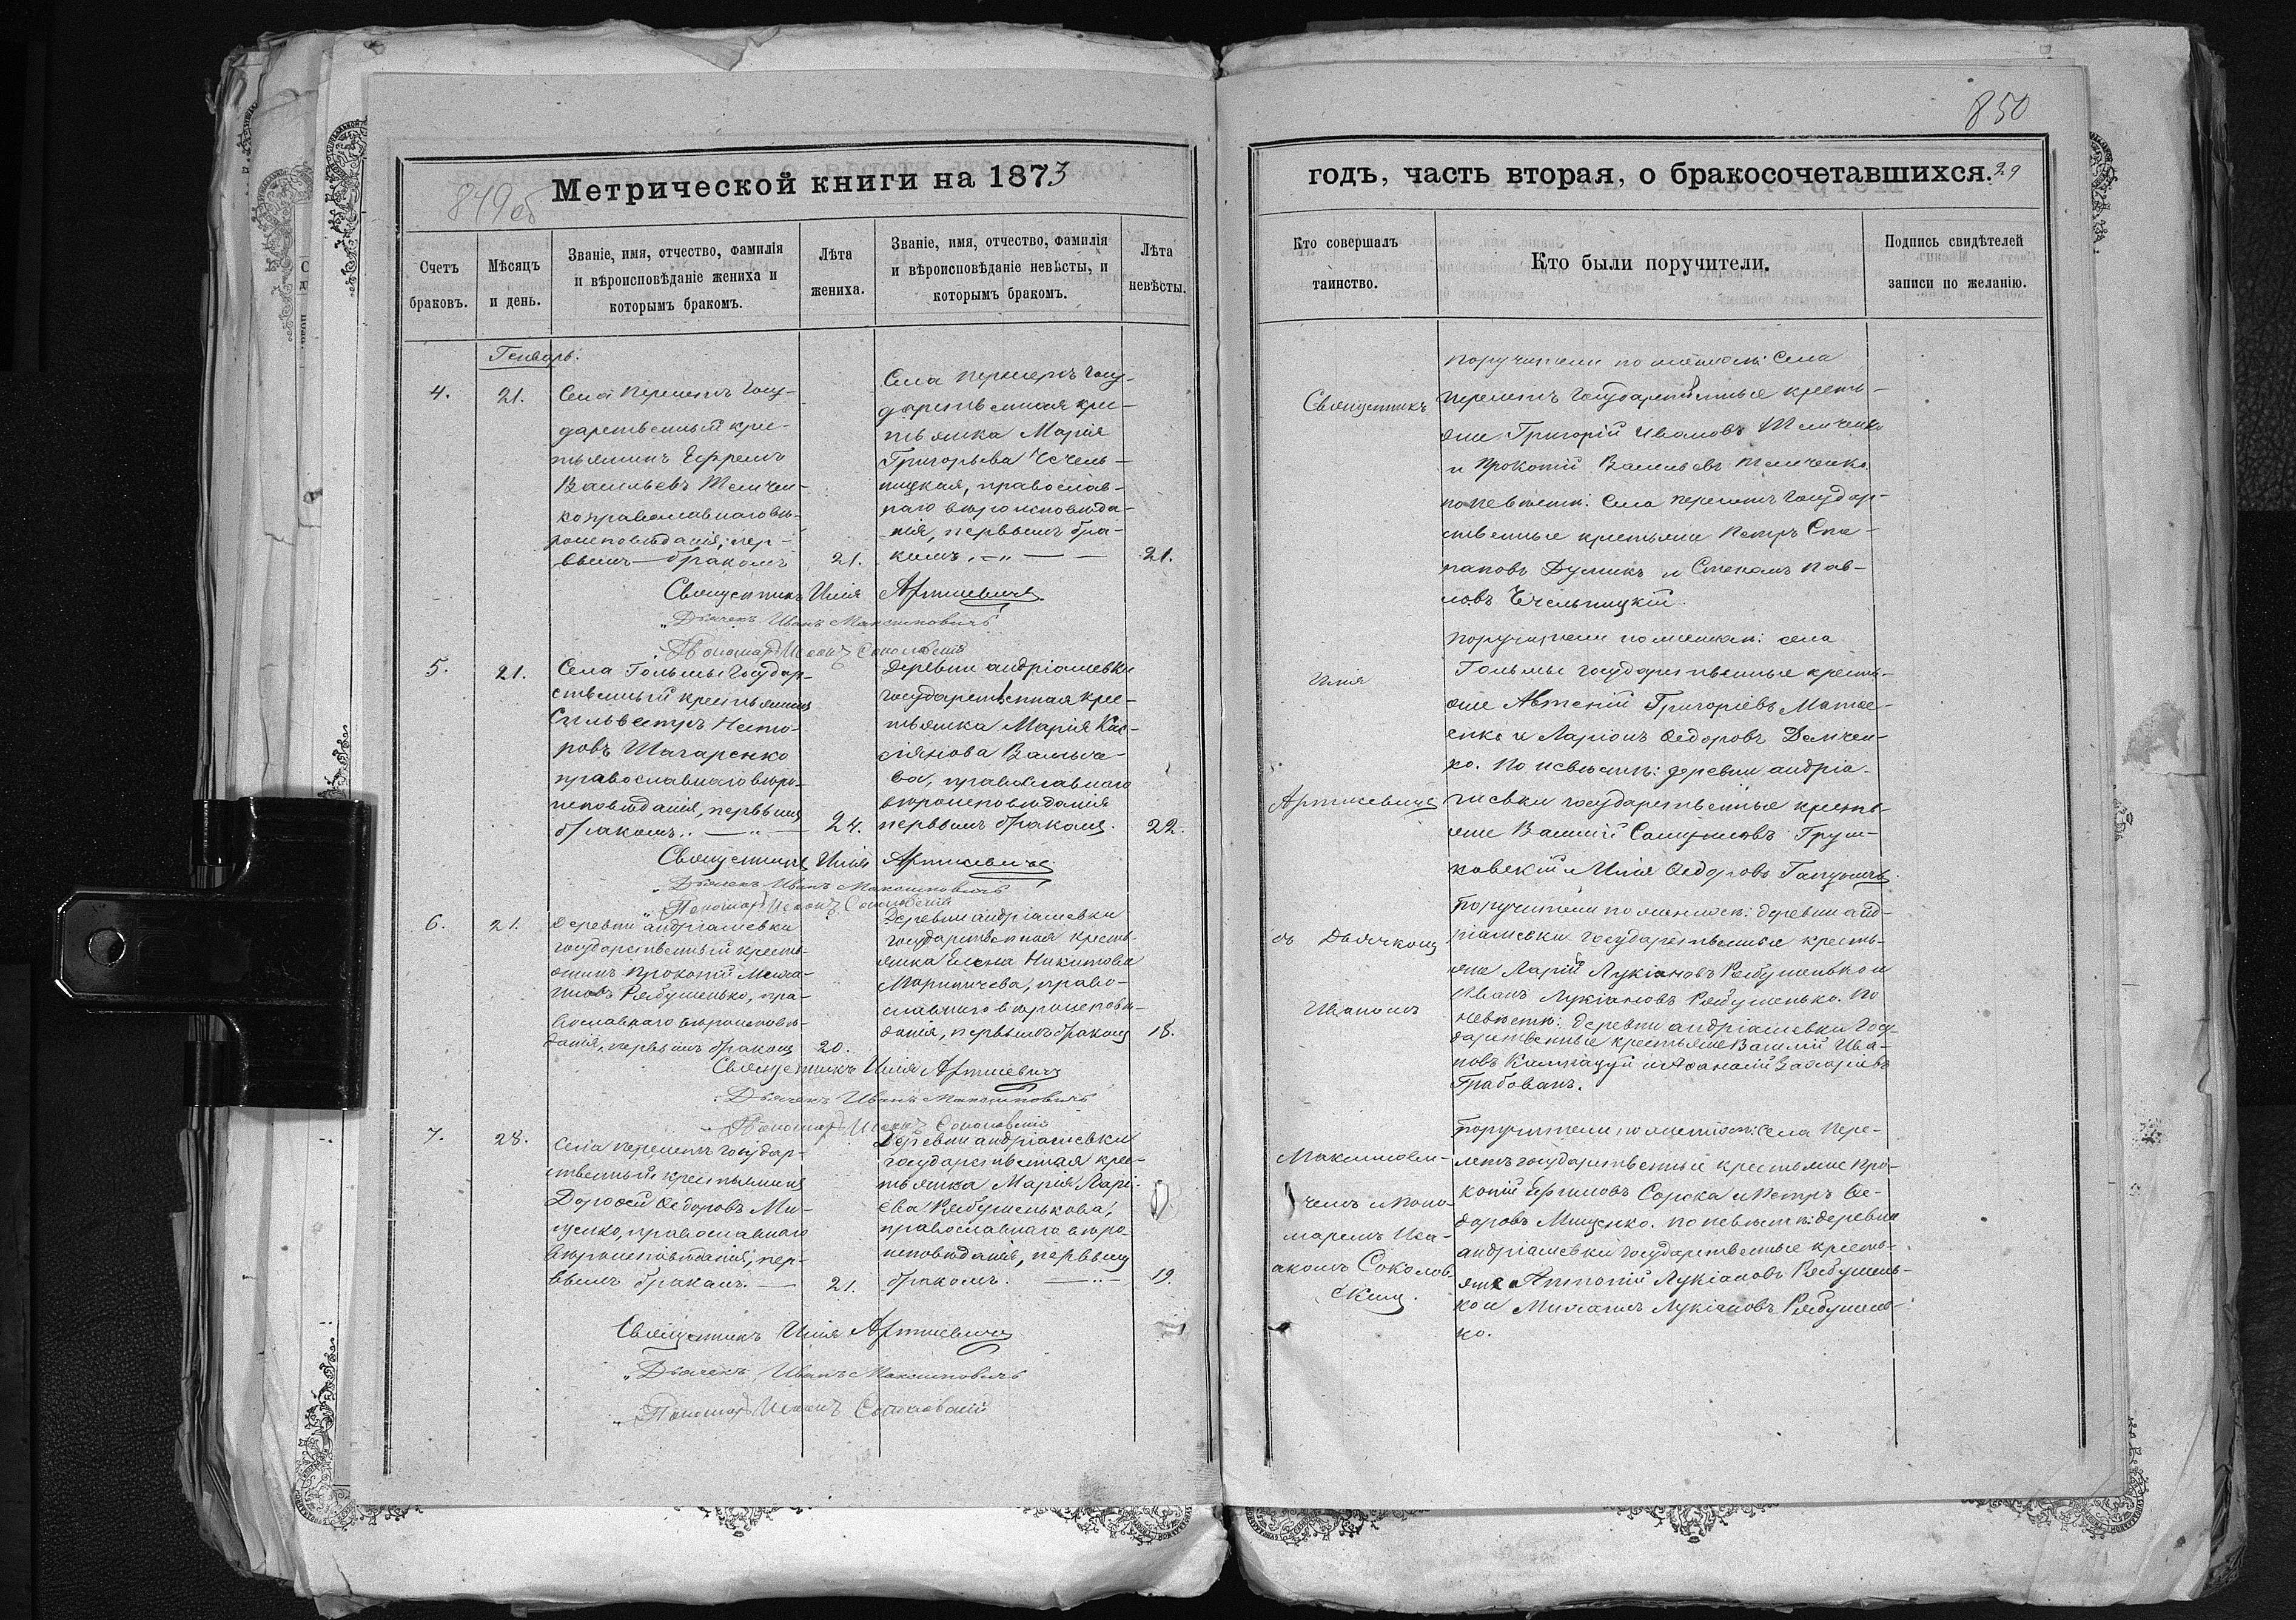 849об
Метрической книги на 1873
Счетъ браковъ.
Мѣсяцъ и день.
Званіе, имя, отчество, фамилія
и вѣроисповѣданіе жениха и
которымъ бракомъ.
Лѣта жениха.
Званіе, имя, отчество, фамилія
и вѣроисповѣданіе невѣсты, и
которымъ бракомъ.
Лѣта невѣсты.
Генварь.
4.
21.
Села Перелетъ Госу-
дарственный крес-
тьянинъ Ефремъ
Васильевъ
православнаго вѣ-
роисповѣданія, пер-
вымъ бракомъ
21.
Села Перелетъ Госу-
дарственная крес-
тьянка Марія
Григорьева Чечель-
ницкая, православ-
наго вѣроисповѣда-
нія, первымъ бра-
комъ. — „ —
21.
Священникъ Илія Артиевичъ
„ Дьячекъ Иванъ Максимовичъ
„ Пономарь Исаакъ Соколовскій
5.
21.
Села Гольмы Государ-
ственный крестьянинъ
Сильвестръ Несто-
ровъ
православнаго вѣро-
исповѣданія, первымъ
бракомъ. — „ —
24.
Деревни Андріяшевки
государственная крес-
тьянка Марія Кас-
сіянова
православнаго
вѣроисповѣданія
первымъ бракомъ.
22.
Священникъ Илія Артиевичъ
„ Дьячекъ Иванъ Максимовичъ
„ Пономарь Исаакъ Соколовскій
6.
21.
Деревни Андріяшевки
государственный кресть-
янинъ Прокопій Миха-
иловъ Рябушенько, пра-
вославнаго вѣроисповѣ-
данія, первымъ бракомъ
20.
Деревни Андріяшевки
государственная кресть-
янка Елена Никитова
право-
славнаго вѣроисповѣ-
данія, первымъ бракомъ
18.
Священникъ Илія Артиевичъ
„ Дьячекъ Иванъ Максимовичъ
„ Пономарь Исаакъ Соколовскій
7.
28.
Села Перелетъ государ-
ственный крестьянинъ
Дорофей Ѳедоровъ Ми-
щенко, православнаго
вѣроисповѣданія, пер-
вымъ бракомъ. —
21.
Деревни Андріяшевки
государственная крес-
тьянка Марія Ларі-
ева Рябушенькова,
православнаго вѣро-
исповѣданія, первымъ
бракомъ. — „ —
19.
Священникъ Илія Артиевичъ
„ Дьячекъ Иванъ Максимовичъ
„ Пономарь Исаакъ Соколовскій
850
годъ, часть вторая, о бракосочетавшихся. 29
Кто совершалъ таинство.
Кто были поручители.
Подпись свидѣтелей
записи по желанію.
Священникъ
Илія
Артиевичъ
съ Дьячкомъ
Иваномъ
Максимови-
чемъ и Поно-
маремъ Иса-
акомъ Соколов-
скимъ.
Поручители по женихѣ: Села
Перелетъ Государственные кресть-
яне Григорій Ивановъ
и Прокопій Васильевъ
по невѣстѣ: Села Перелетъ Государ-
ственные крестьяне Петръ
и Степанъ Пав-
ловъ Чечельницкій.
Поручители по женихѣ: села
Гольмы государственные кресть-
яне Григоріевъ
и Ларіонъ Ѳедоровъ Демчен-
ко. По невѣстѣ: деревни Андрія-
шевки государственные кресть-
яне Василій
и Илія Ѳедоровъ
Поручители по женихѣ: деревни Анд-
ріяшевки государственные кресть-
яне Ларій Лукіановъ Рябушенько и
Иванъ Лукіановъ Рябушенько. По
невѣстѣ: деревни Андріяшевки Госу-
дарственные крестьяне Василій Ива-
новъ и Аѳанасій Захаріевъ
Грабованъ.
Поручители по женихѣ: села Пере-
летъ государственные крестьяне Про-
копій Сорока и Петръ Ѳе-
доровъ Мищенко. по невѣстѣ: деревни
Андріяшевки государственные кресть-
яне Антоній Лукіановъ Рябушень-
ко и Михаилъ Лукіановъ Рябушень-
ко.